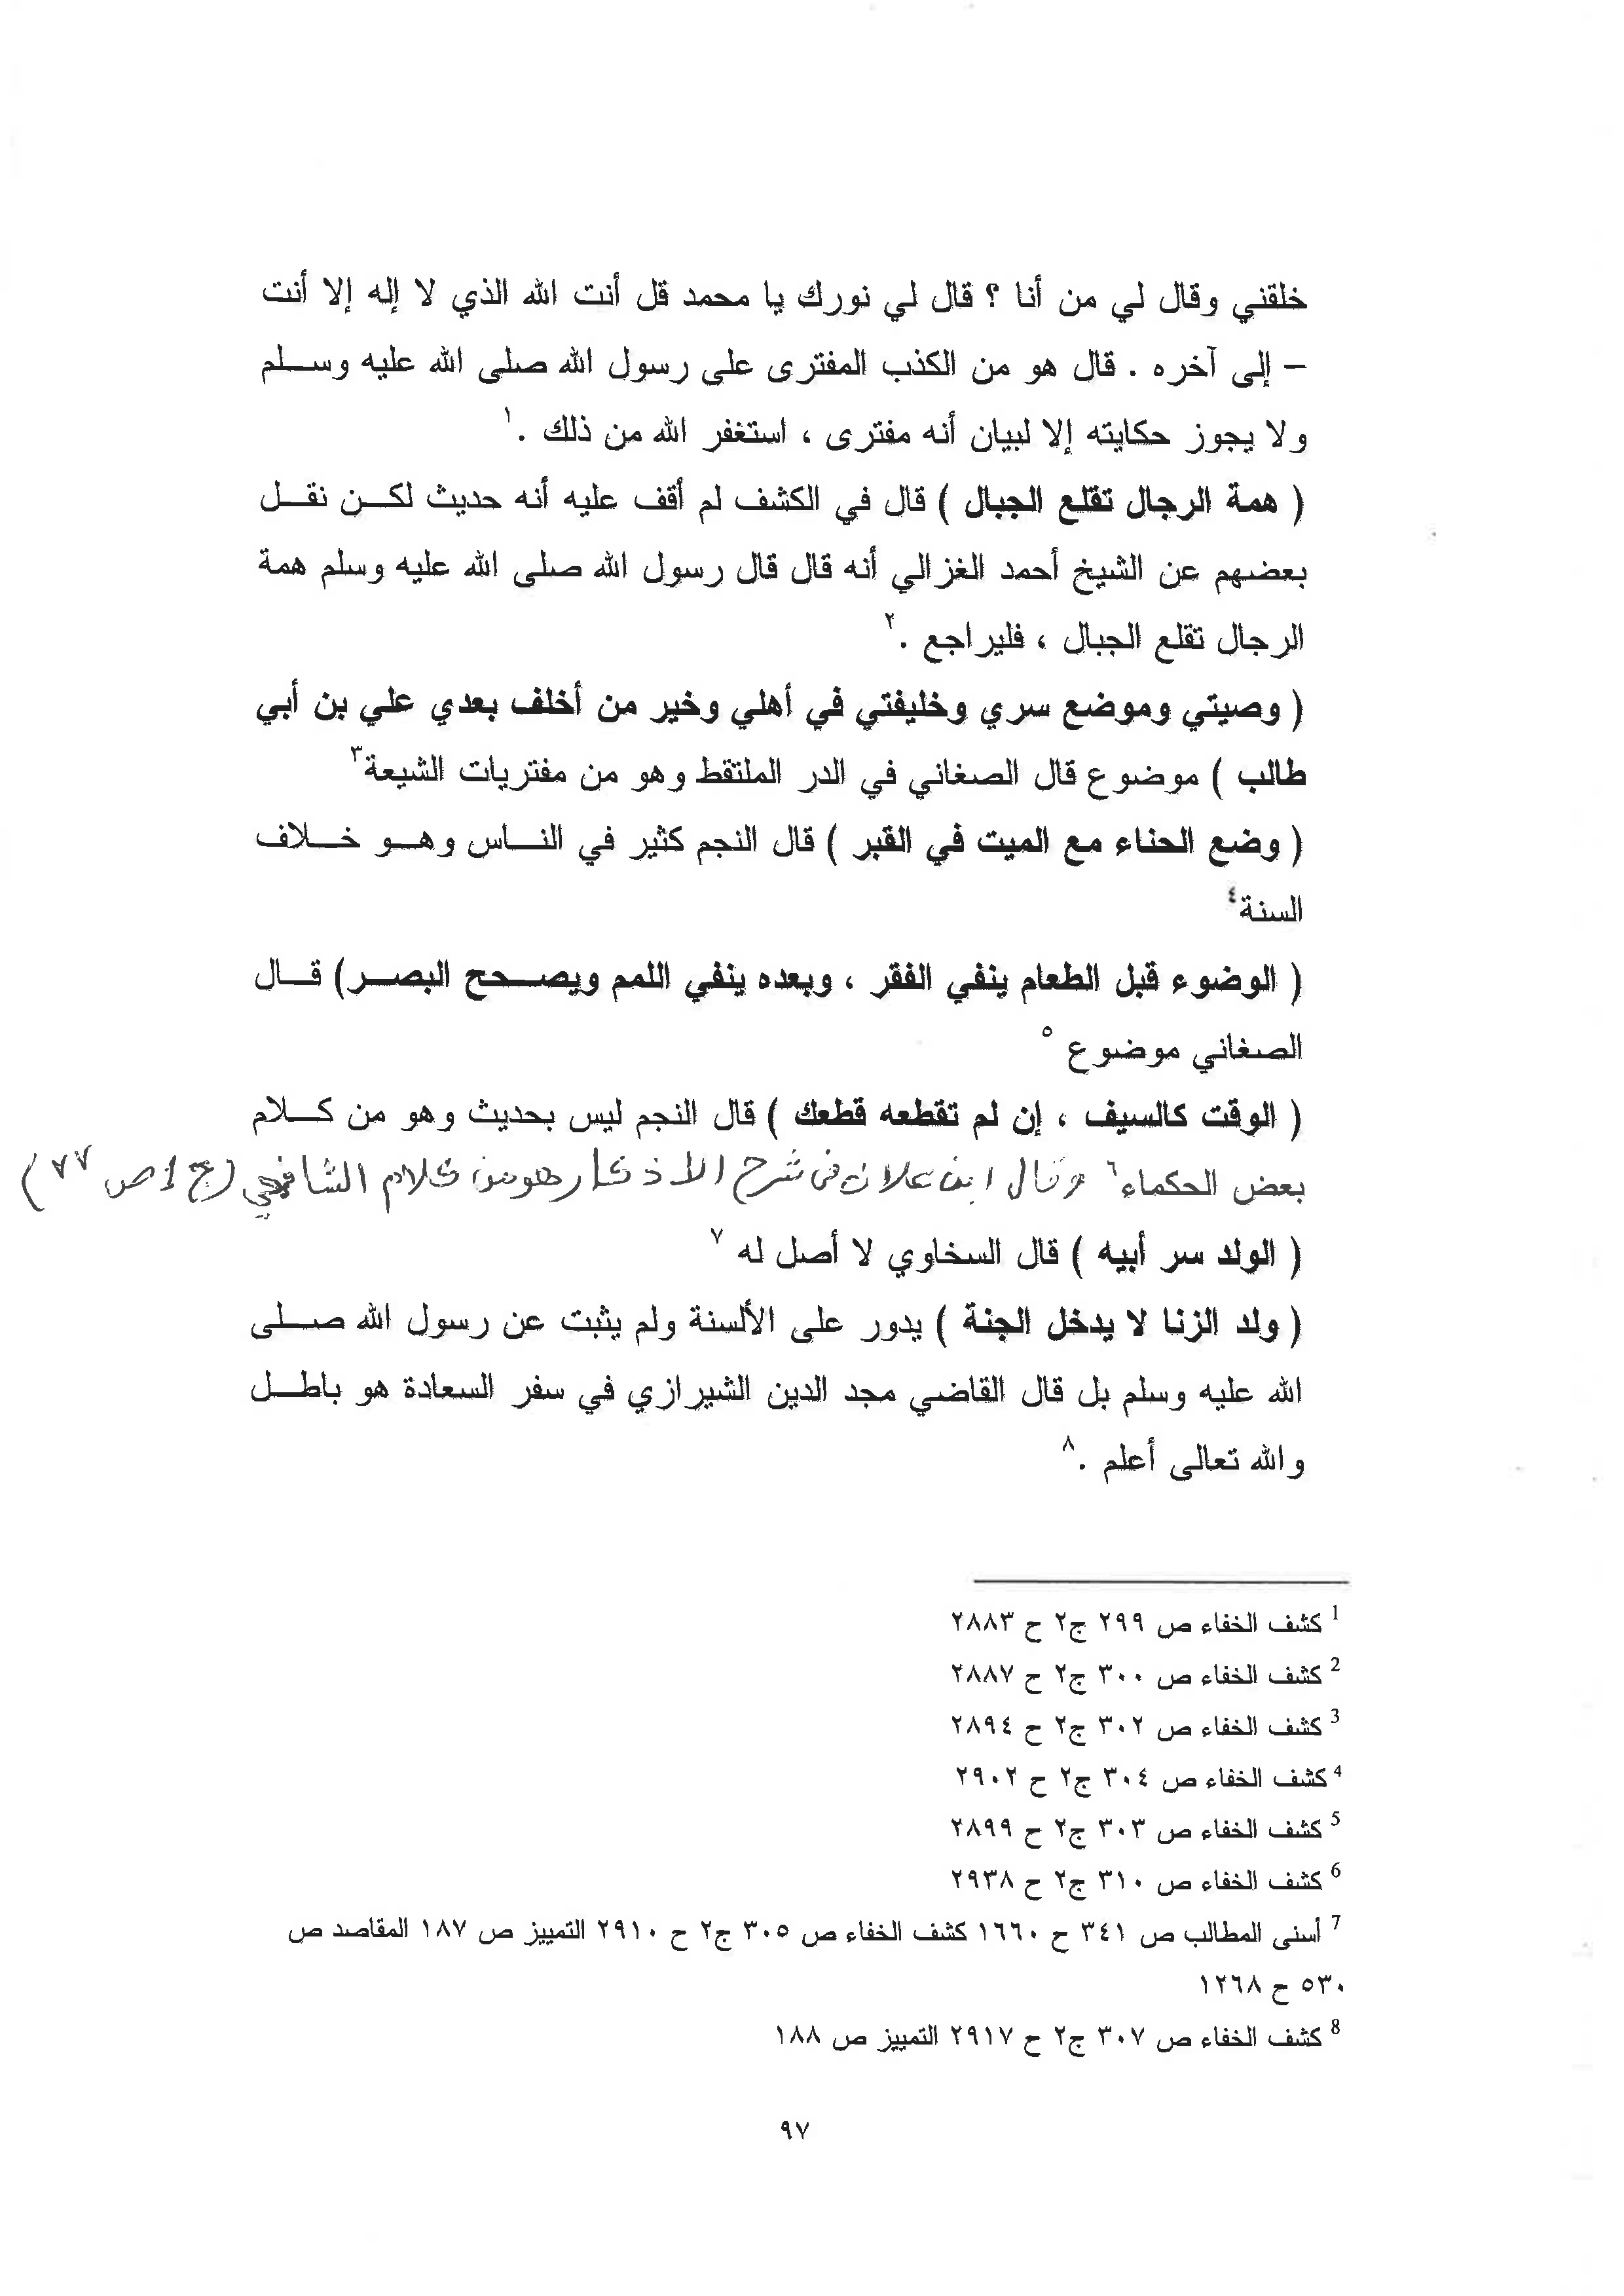 خلقني وقال لي من أنا ؟ قال لي نورك يا محمد قل أنت الله الذي لا إله إلا أنت
– إلى آخره . قال هو من الكذب المفترى على رسول الله صلى الله عليه وسلم
ولا يجوز حكايته إلا لبيان أنه مفترى ، استغفر الله من ذلك .١
( همة الرجال تقلع الجبال ) قال في الكشف لم أقف عليه أنه حديث لكن نقل
بعضهم عن الشيخ أحمد الغزالي أنه قال قال رسول الله صلى الله عليه وسلم همة
الرجال تقلع الجبال ، فليراجع .٢
( وصيتي وموضع سري وخليفتي في أهلي وخير من أخلف بعدي علي بن أبي
طالب ) موضوع قال الصغاني في الدر الملتقط وهو من مفتريات الشيعة٣
( وضع الحناء مع الميت في القبر ) قال النجم كثير في الناس وهو خلاف
السنة٤
( الوضوء قبل الطعام ينفي الفقر ، وبعده ينفي اللمم ويصحح البصر) قال
الصغاني موضوع ٥
( الوقت كالسيف ، إن لم تقطعه قطعك ) قال النجم ليس بحديث وهو من كلام
بعض الحكماء٦ وقال ابن علان في شرح الاذكار هو من كلام الشافعي (ج 1 ص ٧٧)
( الولد سر أبيه ) قال السخاوي لا أصل له ٧
( ولد الزنا لا يدخل الجنة ) يدور على الألسنة ولم يثبت عن رسول الله صلى
الله عليه وسلم بل قال القاضي مجد الدين الشيرازي في سفر السعادة هو باطل
والله تعالى أعلم .٨
1 كشف الخفاء ص ٢٩٩ ج٢ ح ٢٨٨٣
2 كشف الخفاء ص ٣٠٠ ج٢ ح ٢٨٨٧
3 كشف الخفاء ص ٣٠٢ ج٢ ح ٢٨٩٤
4 كشف الخفاء ص ٣٠٤ ج٢ ح ٢٩٠٢
5 كشف الخفاء ص ٣٠٣ ج٢ ح ٢٨٩٩
6 كشف الخفاء ص ٣١٠ ج٢ ح ٢٩٣٨
7 أسنى المطالب ص ٣٤١ ح ١٦٦٠ كشف الخفاء ص ٣٠٥ ج٢ ح ٢٩١٠ التمييز ص ١٨٧ المقاصد ص
٥٣٠ ح ١٢٦٨
8 كشف الخفاء ص ٣٠٧ ج٢ ح ٢٩١٧ التمييز ص ١٨٨
٩٧